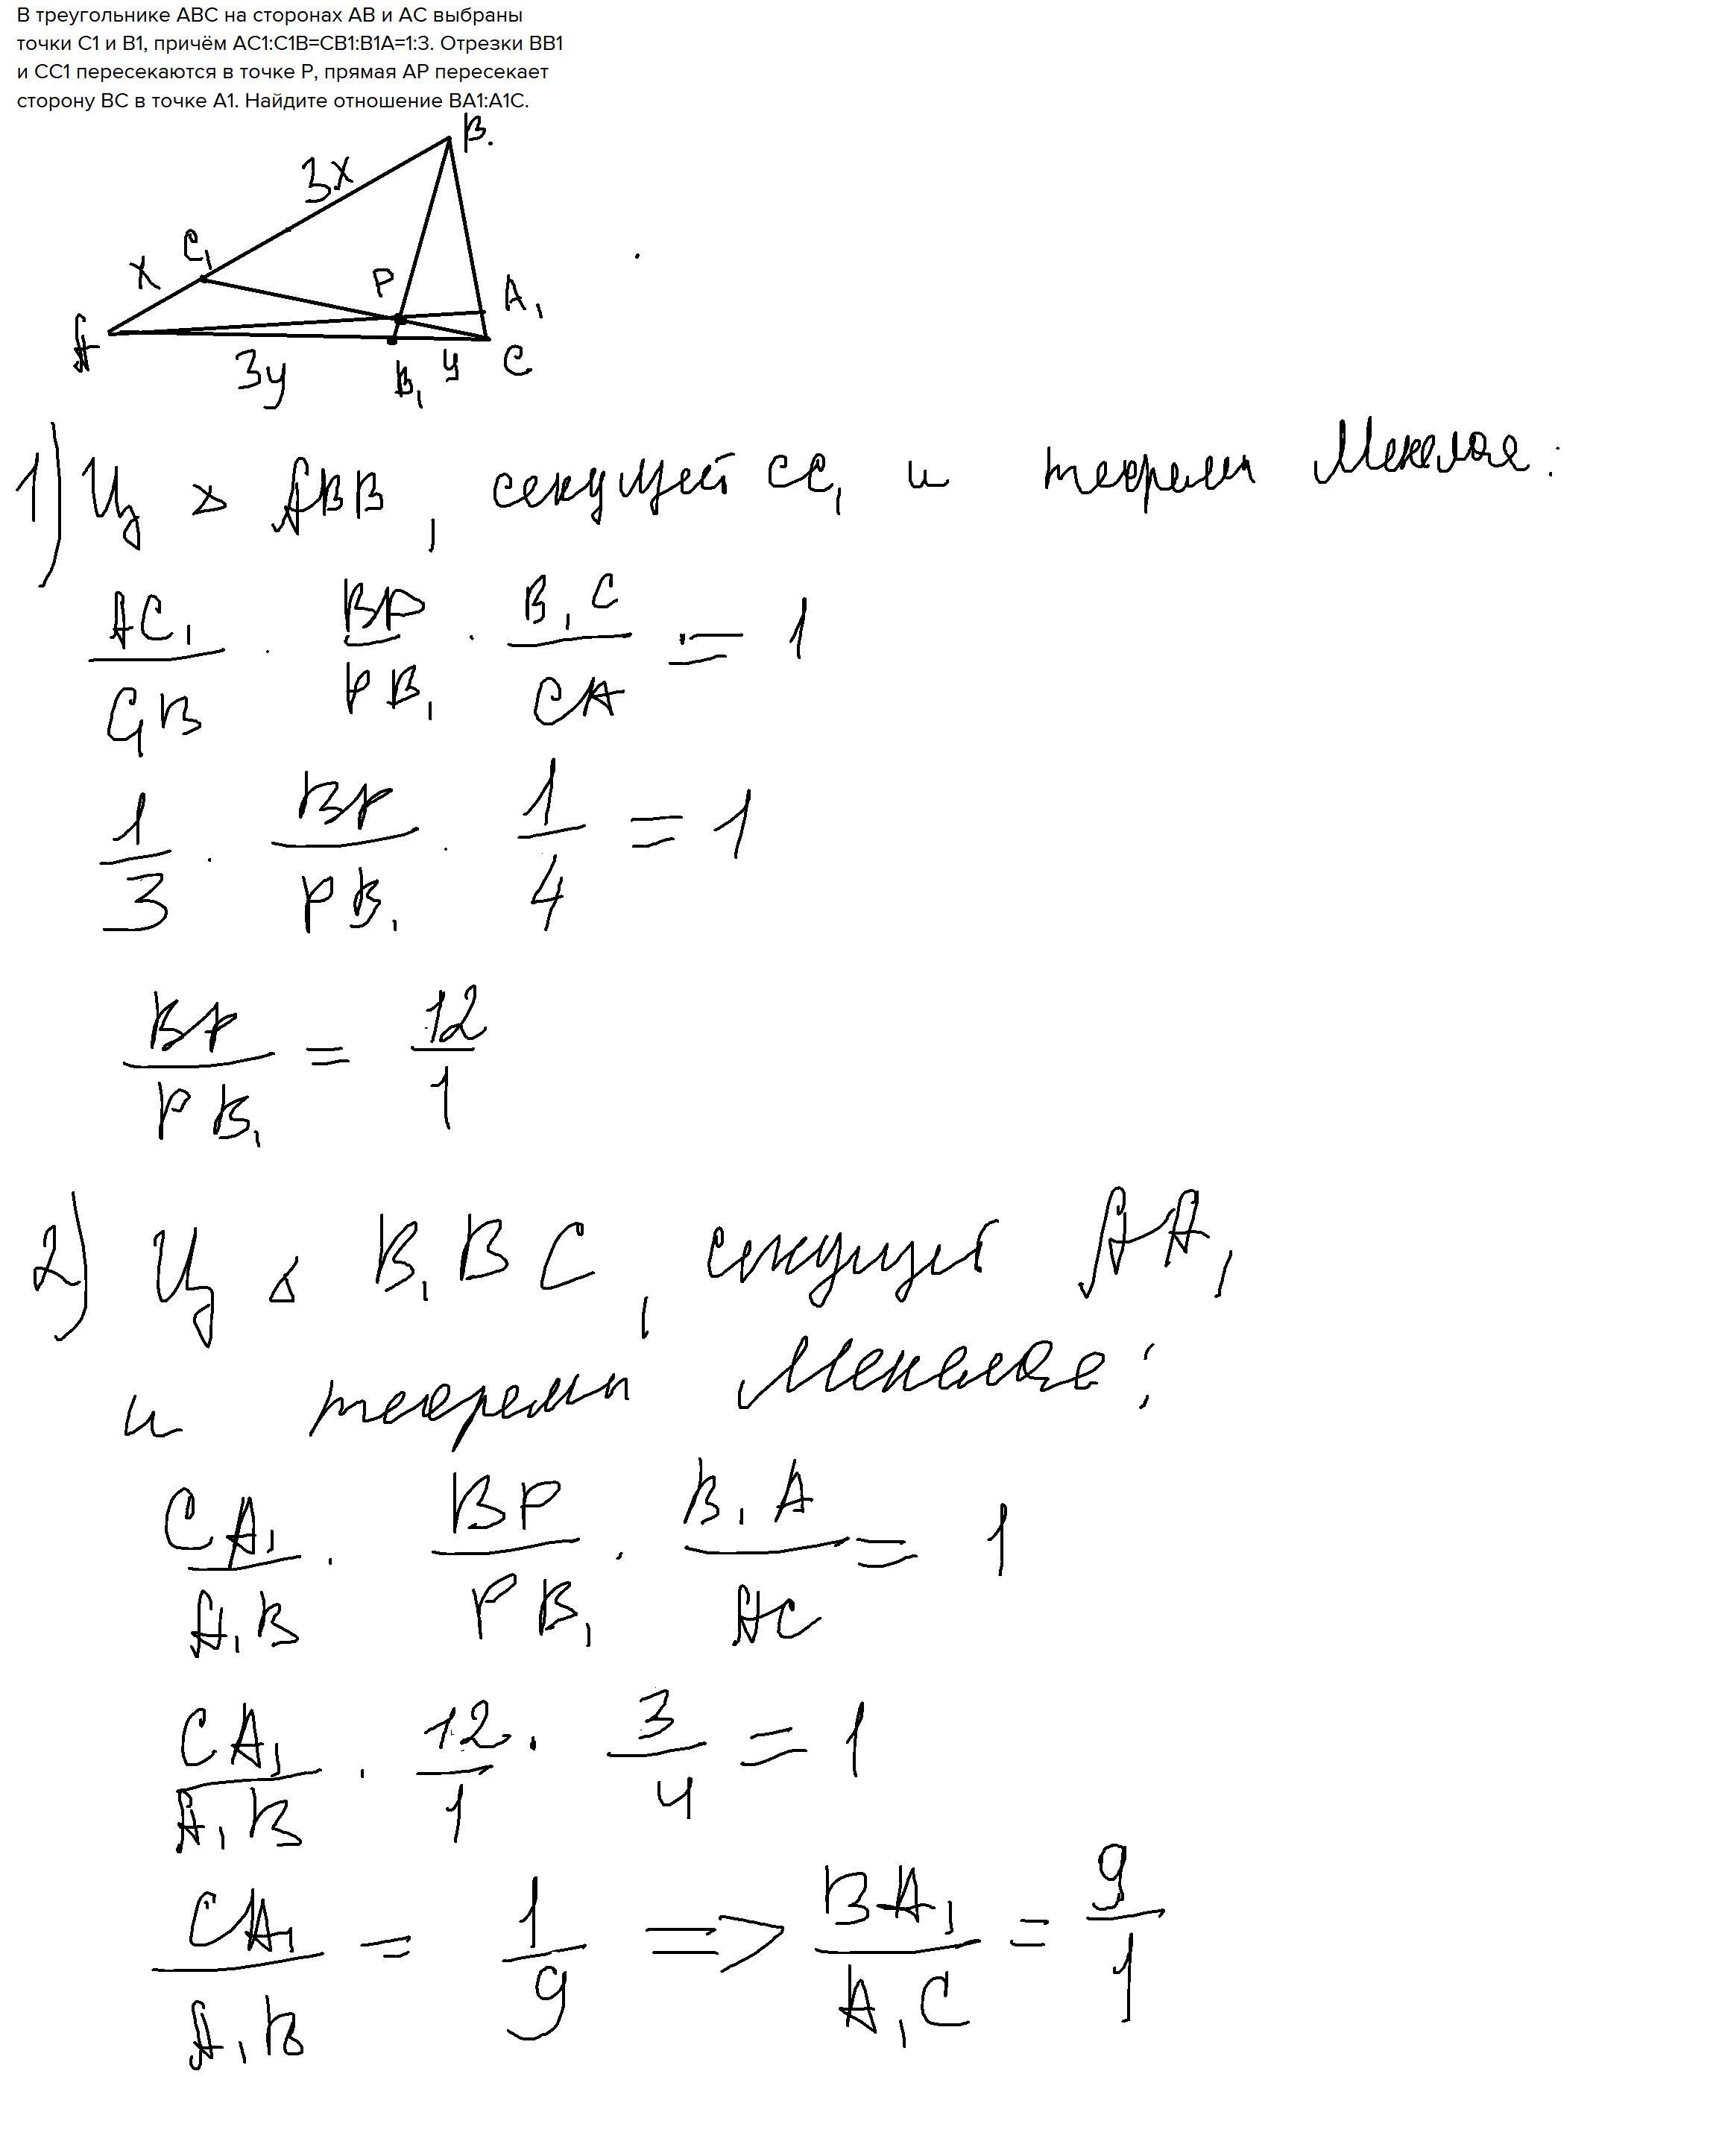 В треугольнике ABC на сторонах AB и AC выбраны
точки C1 и B1, причём AC1:C1B=CB1:B1A=1:3. Отрезки BB1
и CC1 пересекаются в точке P, прямая AP пересекает
сторону BC в точке A1. Найдите отношение BA1:A1C.
B
3x
C₁
x
P
A₁
A
3y
B₁
y
C
1) Из △ ABB₁, секущей CC₁ и теоремы Менелая:
AC₁/C₁B · BP/PB₁ · B₁C/CA = 1
1/3 · BP/PB₁ · 1/4 = 1
BP/PB₁ = 12/1
2) Из △ B₁BC, секущей AA₁
и теоремы Менелая:
CA₁/A₁B · BP/PB₁ · B₁A/AC = 1
CA₁/A₁B · 12/1 · 3/4 = 1
CA₁/A₁B = 1/9 => BA₁/A₁C = 9/1